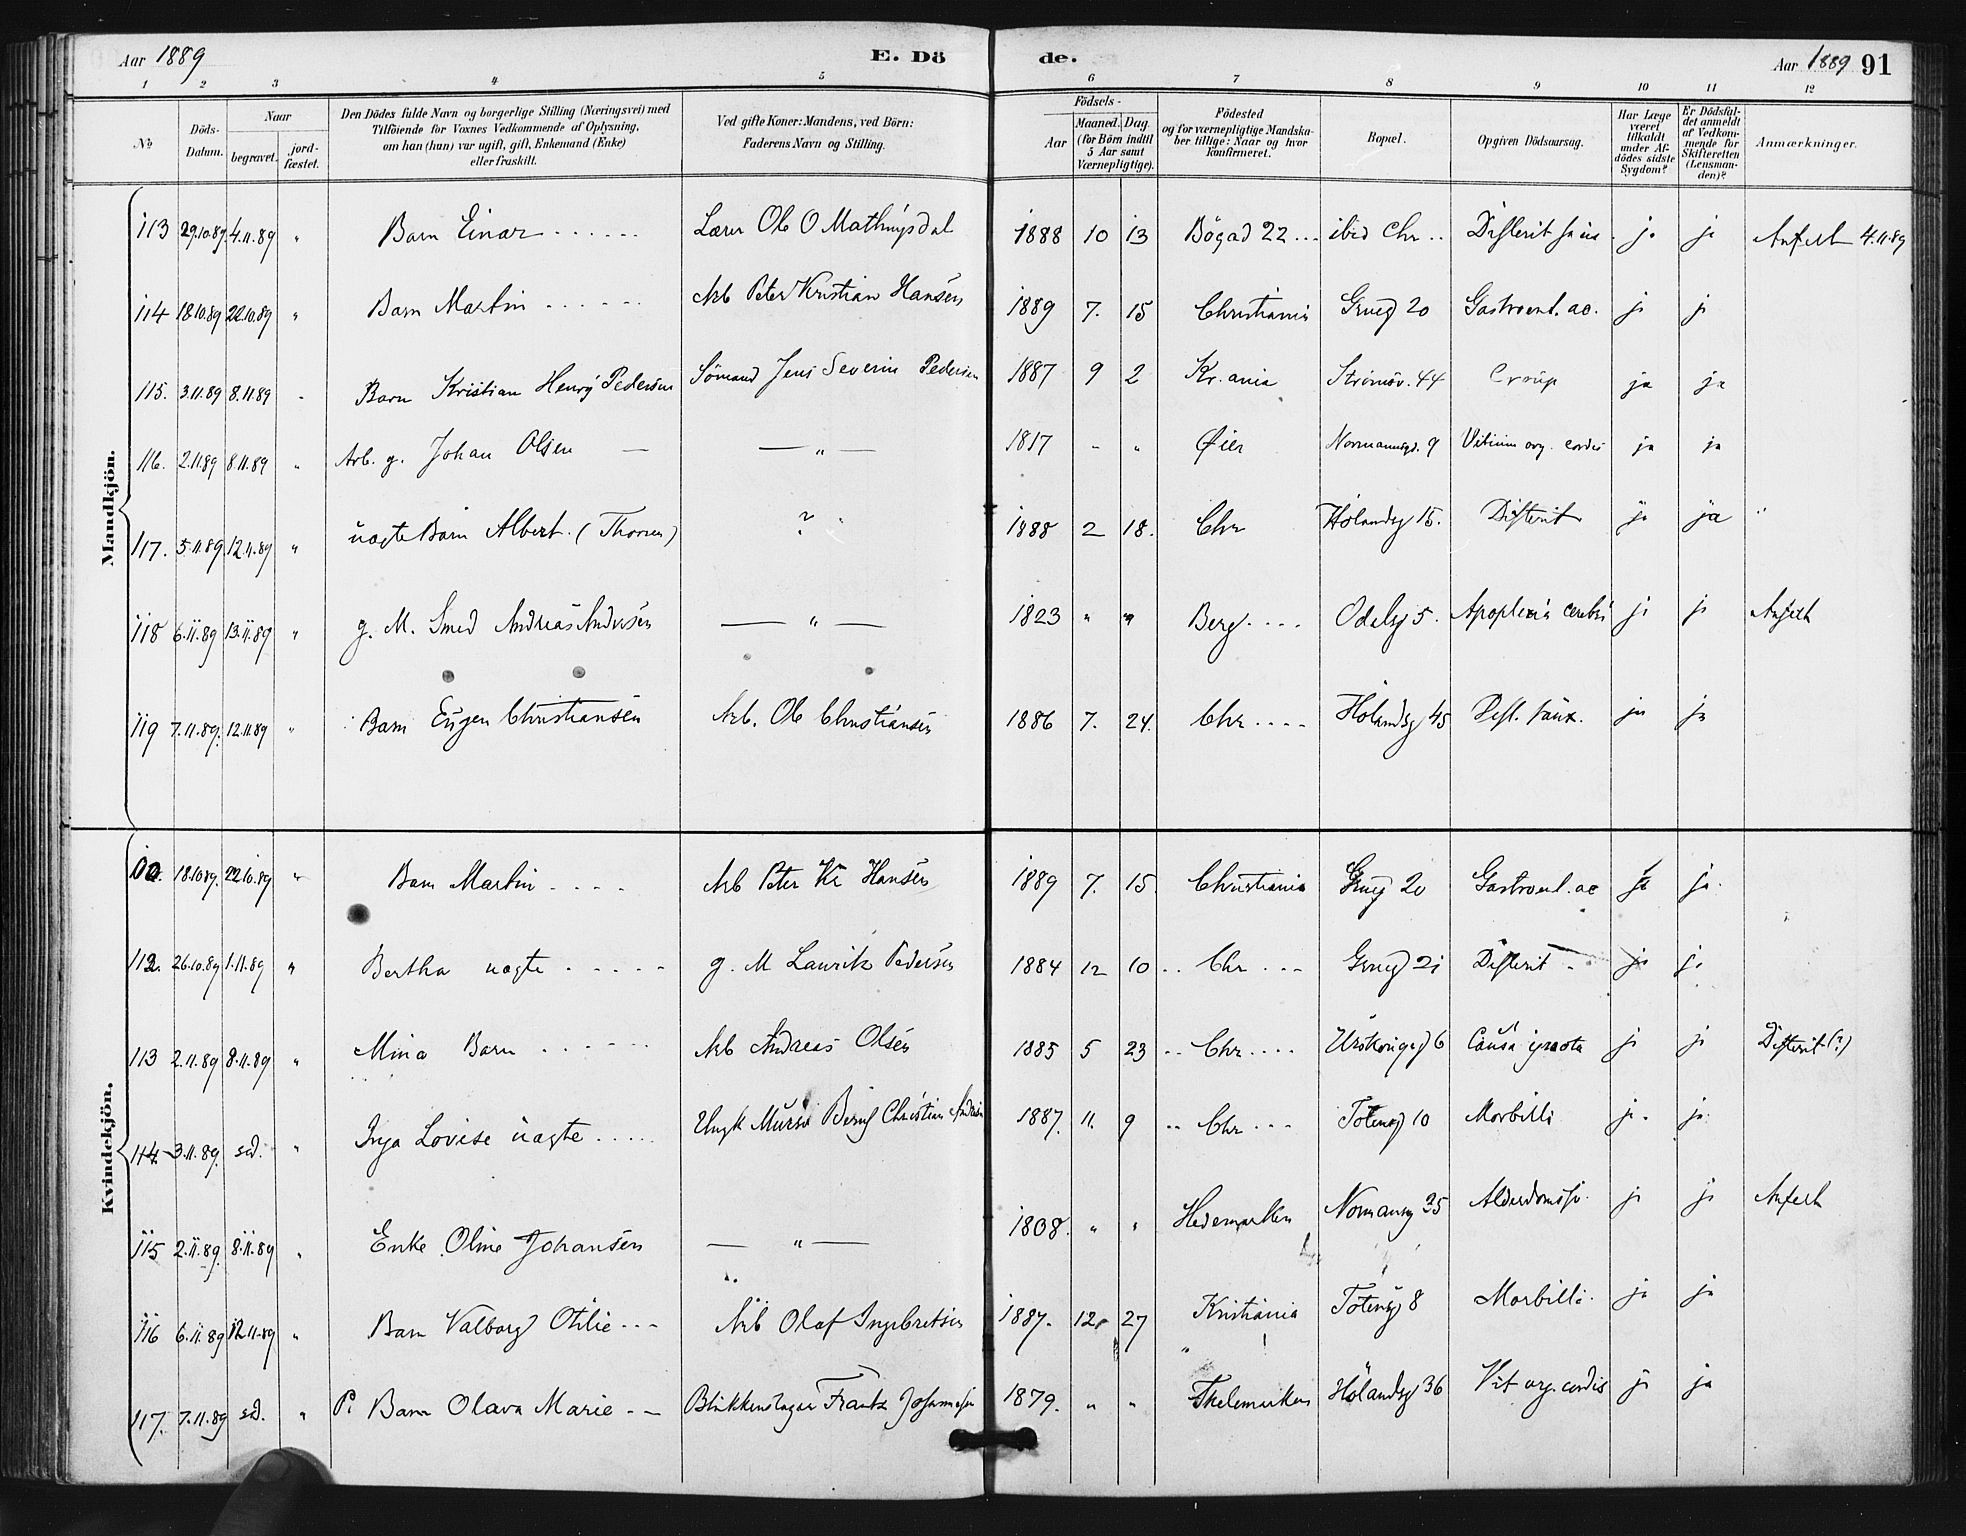 Aar 1889 E. Dö de. Aar 1889 91
1 2 3 4 5 6 7 8 9 10 11 12
No Döds-Datum. Naar begravet. jord-fæstet. Den Dödes fulde Navn og borgerlige Stilling (Næringsvei) med Tilföiende for Voxnes Vedkommende af Oplysning, om han (hun) var ugift, gift, Enkemand (Enke) eller fraskilt. Ved gifte Koner: Mandens, ved Börn: Faderens Navn og Stilling. Födsels- Aar Maaned. Dag (for Börn indtil 5 Aar samt Værnepligtige). Födested og for værnepligtige Mandskaber tillige: Naar og hvor konfirmeret. Bopæl. Opgiven Dödsaarsag. Har Læge været tilkaldt under Afdödes sidste Sygdom? Er Dödsfaldet anmeldt af Vedkommende for Skifteretten (Lensmanden)? Anmærkninger.
Mandkjön.
113 29.10.89 4.11.89 " Barn Einar Lærer Ole O 1888 10 13 Bögad 22 ibid Chr Difterit ja ja Anfert 4.11.89
114 18.10.89 22.10.89 " Barn Martin Arb Peter Kristian Hansen 1889 7. 15 Christiania Grueg 20 Gastroent. ac. ja ja
115. 3.11.89 8.11.89 " Barn Kristian Henry Pedersen Sömand Jens Severin Pedersen 1887 9 2 Kr.ania Strömsv. 44 Croup ja ja
116. 2.11.89 8.11.89 " Arb. g. Johan Olsen — — " — 1817 " " Øier Normannsgd. 9 Vitium org. cordis ja ja
117. 5.11.89 12.11.89 " uægte Barn Albert. (Thorsen) ? " 1888 2 18. Chr Hölandsg 15. Difterit ja ja "
118 6.11.89 13.11.89 " g. M. Smed Andreas Andersen — " — 1823 " " Berg Odelsg 5. Apoplexia cerebri ja ja Anfert
119 7.11.89. 12.11.89 " Barn Eugen Christiansen Arb. Ole Christiansen 1886 7. 24. Chr Hölandsg 45 Dift. faux. ja ja
Kvindekjön.
18.10.89. 22.10.89 " Barn Martin Arb Peter Kr Hansen 1889 7. 15 Christiania Grueg 20 Gastroent. ac ja ja.
112. 26.10.89 1.11.89 " Bertha uægte g. M Laurits Pedersen 1884 12 10 Chr Grueg 21 Difterit ja ja
113 2.11.89 8.11.89 " Mina Barn Arb Andreas Olsen 1885 5 23 Chr Urskougsgd 6 Causa ignota ja ja Difterit (?)
114. 3.11.89. sd. " Inga Lovise uægte Ungk Murer Christian Andersen 1887. 11. 9 Chr Totensg 10 Morbilli ja ja
115 2.11.89. 8.11.89 " Enke Oline Johansen — " — 1808. " " Hedemarken Normansg 35 Alderdomssv. ja ja Anfert
116 6.11.89 12.11.89 " Barn Valborg Otilie Arb Olaf Ingebretsen 1887. 12 27 Kristiania Totensg 8 Morbilli ja ja
117. 7.11.89 sd. " P. Barn Olava Marie Blikkenslager Frantz Johannesen 1879. " " Thelemarken Hölandsg 36 Vit org. cordis ja ja